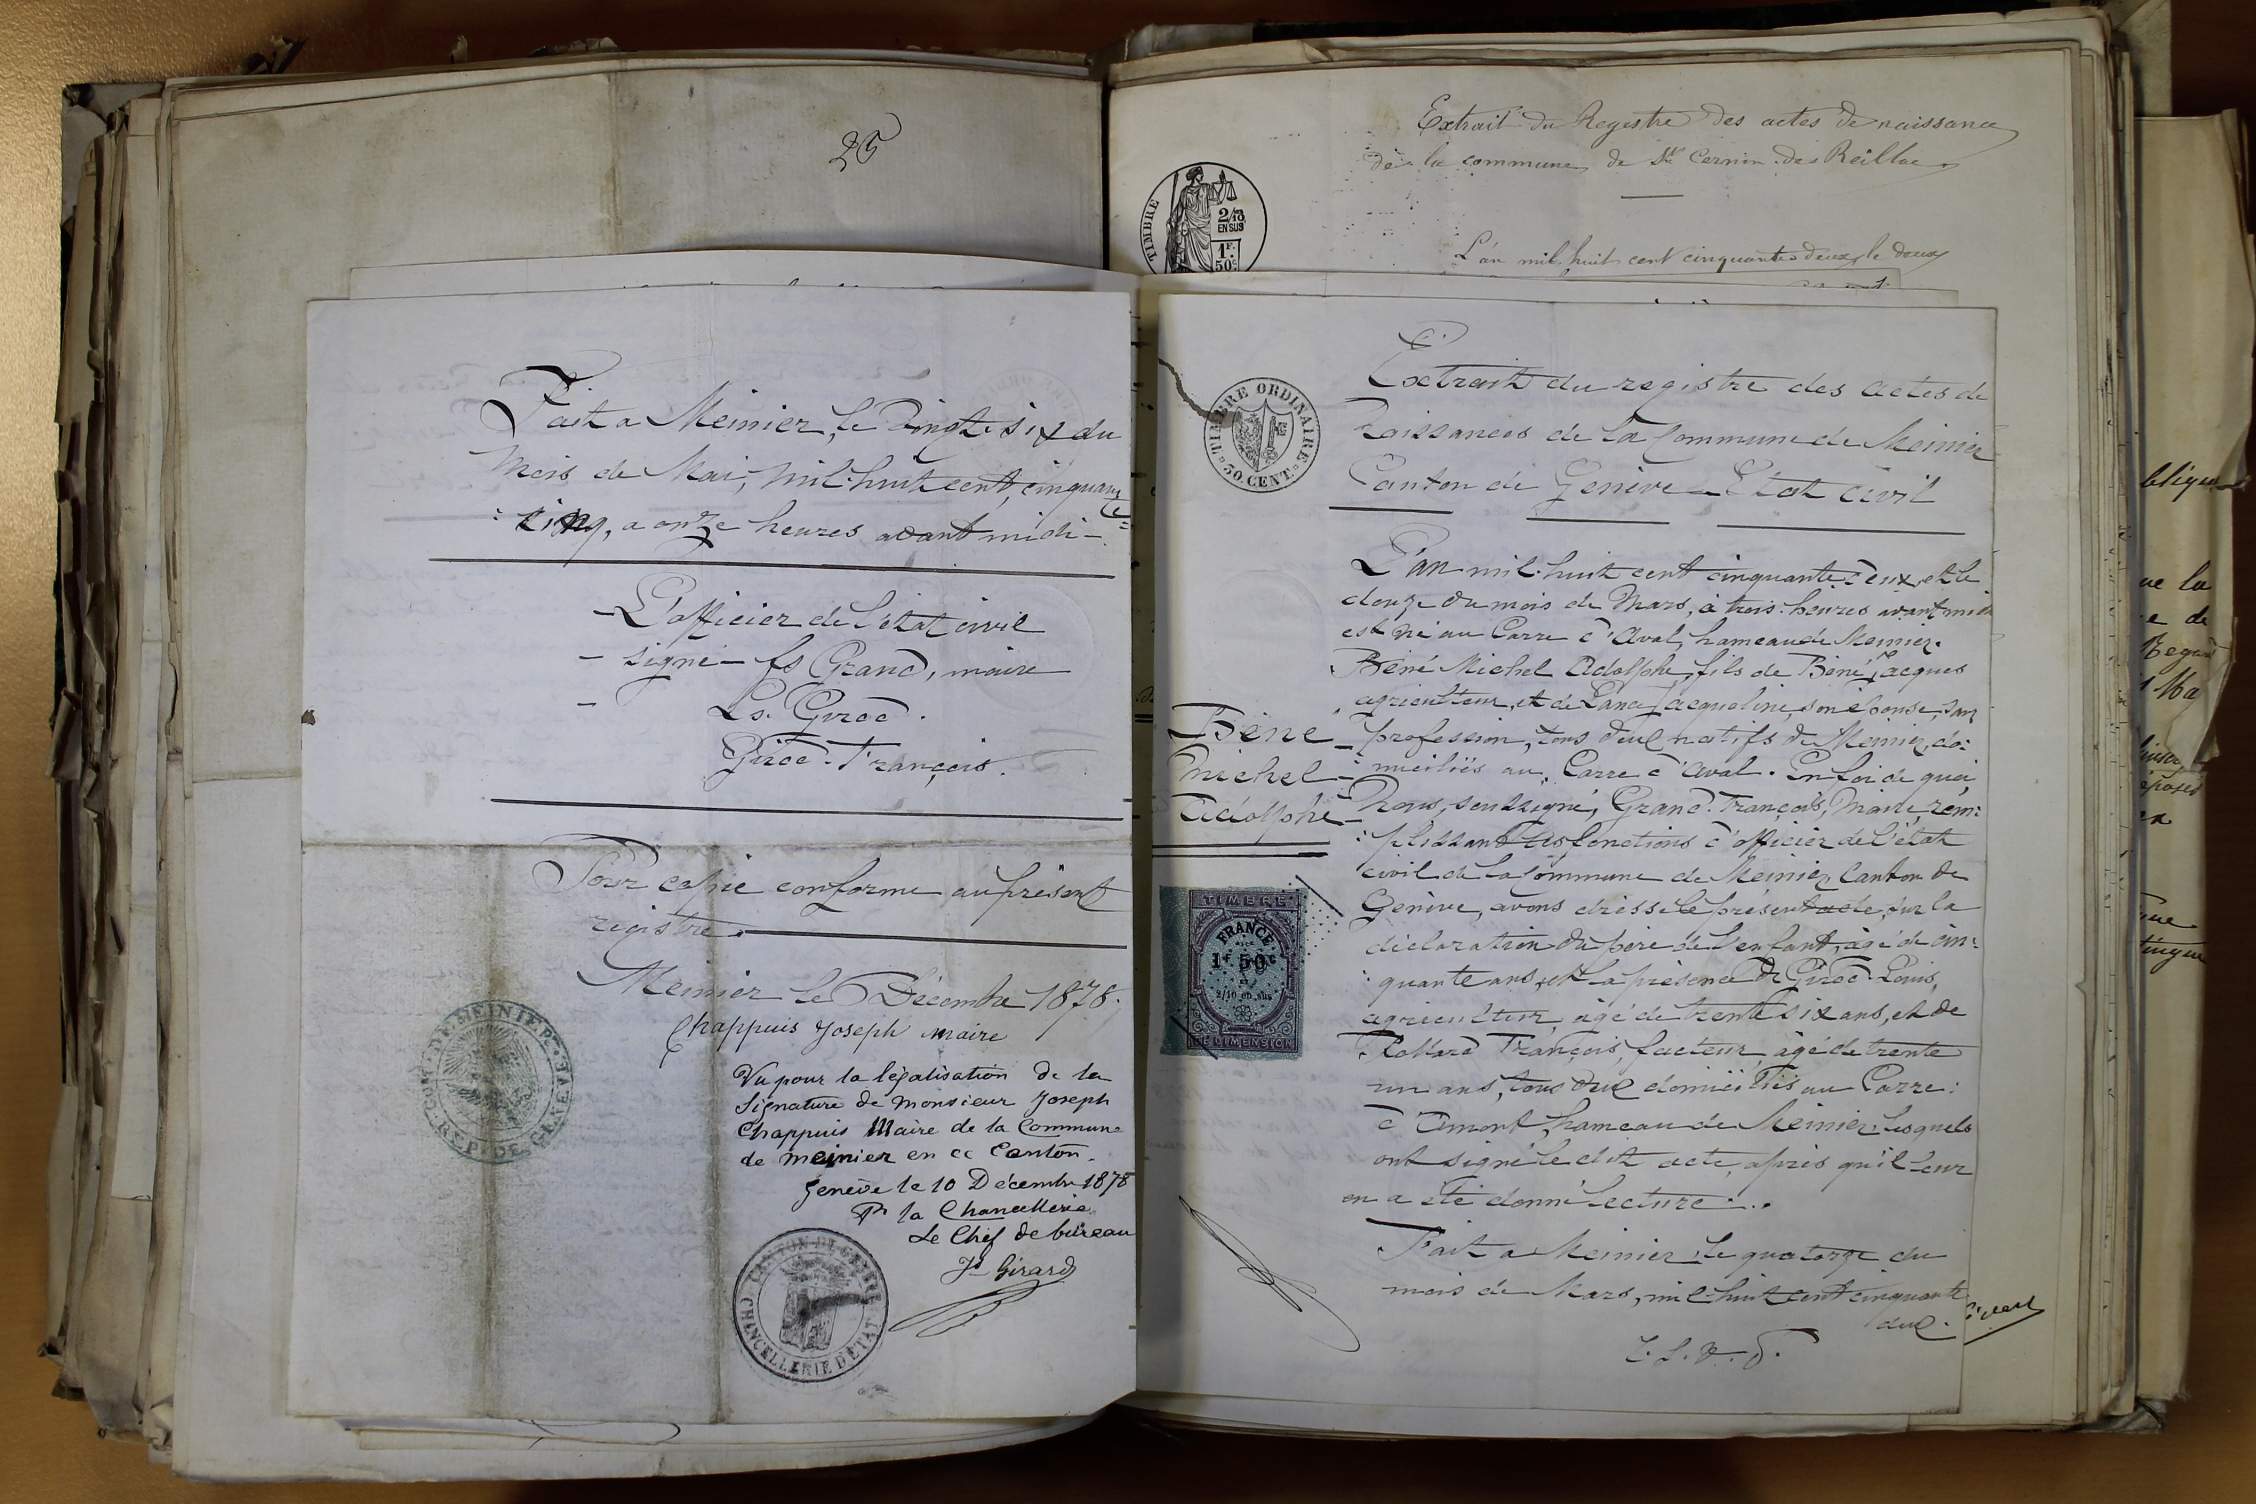 25
Fait a Meinier, le Vingt six du
Mois de Mai, mil huit cent, cinquante
cinq, a onze heures avant midi –
– L'officier de l'état civil
– signé – fs Grand, maire
– Ls. Girod.
Girod. François.
Pour copie conforme au présent
registre.
Meinier le 9 Décembre 1878.
Chappuis Joseph maire
Vu pour la légalisation de la
Signature de Monsieur Joseph
Chappuis Maire de la Commune
de Meinier en ce Canton.
Genève le 10 Décembre 1878
Pr la Chancellerie
Le Chef de bureau
Jh Girard
COM. DE MEINIER
RÉP. DE GENÈVE
CANTON DE GENÈVE
CHANCELLERIE D'ÉTAT
Extrait du Registre des actes de naissance
de la commune de St Cernin de Reillac
TIMBRE
2/10
EN SUS
1F.
50c.
L'an mil huit cent cinquante deux le doux
Extrait du registre des actes de
Naissances de la Commune de Meinier
Canton de Genève – Etat civil
TIMBRE ORDINAIRE
50 CENT.
L'an mil huit cent cinquante deux, et le
douze du mois de Mars, à trois heures avant midi
est né au Carre d'Aval, hameau de Meinier.
Béné Michel Adolphe, fils de Béné Jacques
agriculteur, et de Lana Jacqueline, son épouse, san
profession, tous deux natifs de Meinier, do:
miciliés au Carre d'Aval. En foi de quoi,
Nous, soussigné, Grand François, Maire, rem:
:plissant les fonctions d'officier de l'état
civil de la Commune de Meinier Canton de
Genève, avons dressé le présent acte, sur la
déclaration du père de l'enfant, âgé de cin:
:quante ans, et la présence de Girod Louis,
agriculteur, âgé de trente six ans, et de
Rollard François, facteur, âgé de trente
un ans, tous deux domiciliés au Carre:
d'Amont, hameau de Meinier, lesquels
ont signé le dit acte, après qu'il leur
en a été donné lecture:.
Fait a Meinier, le quatorze du
mois de Mars, mil huit cent cinquante
deux.
T. S. V. P.
Béné
Michel
Adolphe
TIMBRE
FRANCE
1F 50c
2/10 en sus
DE DIMENSION